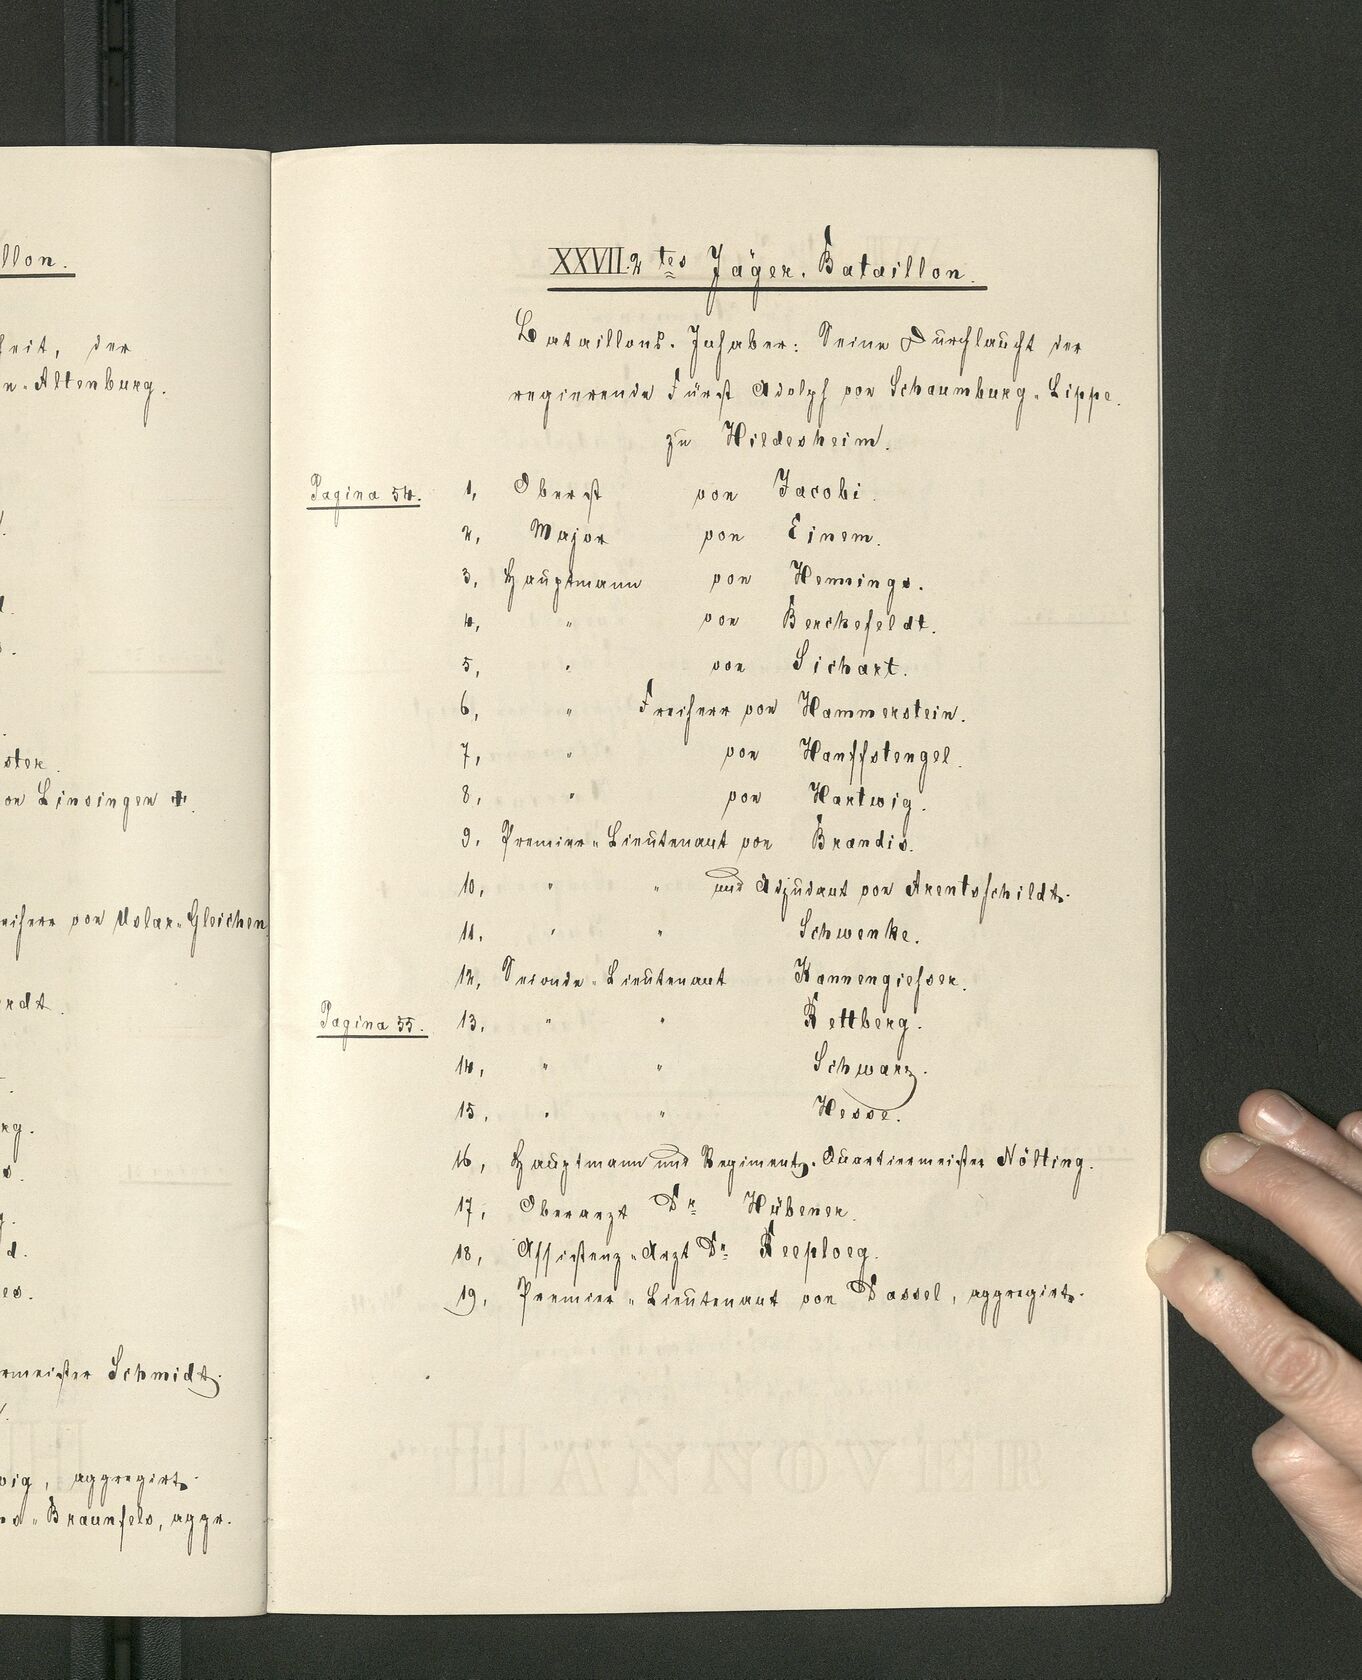 llon.
heit, der
n-Altenburg.
ster.
von Linsingen †.
eiherr von Uslar-Gleichen
erdt.
rg.
s.
g.
d.
es.
rmeister Schmidt.
wig, aggregirt.
ms-Braunfels, aggr.
XXVII. 2tes Jäger-Bataillon.
Bataillons-Inhaber: Seine Durchlaucht der
regierende Fürst Adolph von Schaumburg-Lippe.
zu Hildesheim.
Pagina 54. 1, Oberst von Jacobi.
2, Major von Einem.
3, Hauptmann von Hennings.
4, " von Berckefeldt.
5, " von Sichart.
6, " Freiherr von Hammerstein.
7, " von Hanffstengel.
8, " von Hartwig.
9, Premier-Lieutenant von Brandis.
10, " " und Adjudant von Arentsschildt.
11, " " Schwenke.
12, Seconde-Lieutenant Kannengiesser.
Pagina 55. 13, " " Rettberg.
14, " " Schwarz.
15, " " Hesse.
16, Hauptmann und Regiments-Quartiermeister Nölting.
17, Oberarzt Dr. Hübener.
18, Assistenz-Arzt Dr. Reeploeg.
19, Premier-Lieutenant von Dassel, aggregirt.